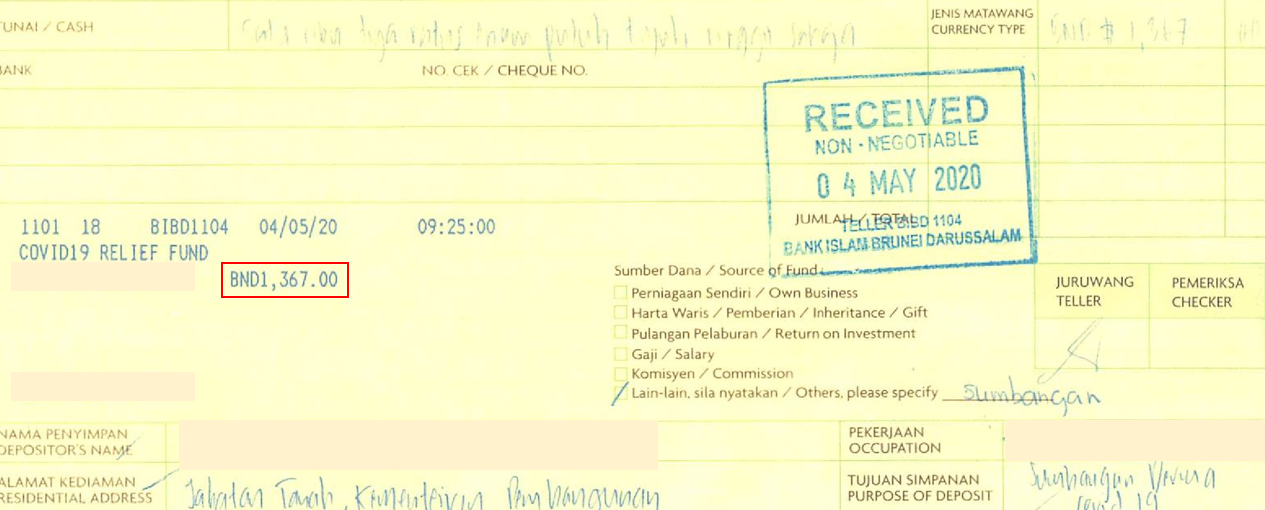 TUNAI / CASH
Satu ribu tiga ratus enam puluh tujuh ringgit sahaja
JENIS MATAWANG
CURRENCY TYPE
BND $ 1,367
BANK
NO. CEK / CHEQUE NO.
RECEIVED
NON - NEGOTIABLE
04 MAY 2020
JUMLAH / TOTAL
TELLER BIBD 1104
BANK ISLAM BRUNEI DARUSSALAM
1101 18 BIBD1104 04/05/20 09:25:00
COVID19 RELIEF FUND
BND1,367.00
Sumber Dana / Source of Fund
Perniagaan Sendiri / Own Business
Harta Waris / Pemberian / Inheritance / Gift
Pulangan Pelaburan / Return on Investment
Gaji / Salary
Komisyen / Commission
Lain-lain, sila nyatakan / Others, please specify sumbangan
JURUWANG
TELLER
PEMERIKSA
CHECKER
NAMA PENYIMPAN
DEPOSITOR'S NAME
PEKERJAAN
OCCUPATION
ALAMAT KEDIAMAN
RESIDENTIAL ADDRESS
Jabatan Tanah, Kementerian Pembangunan
TUJUAN SIMPANAN
PURPOSE OF DEPOSIT
Sumbangan
Covid 19